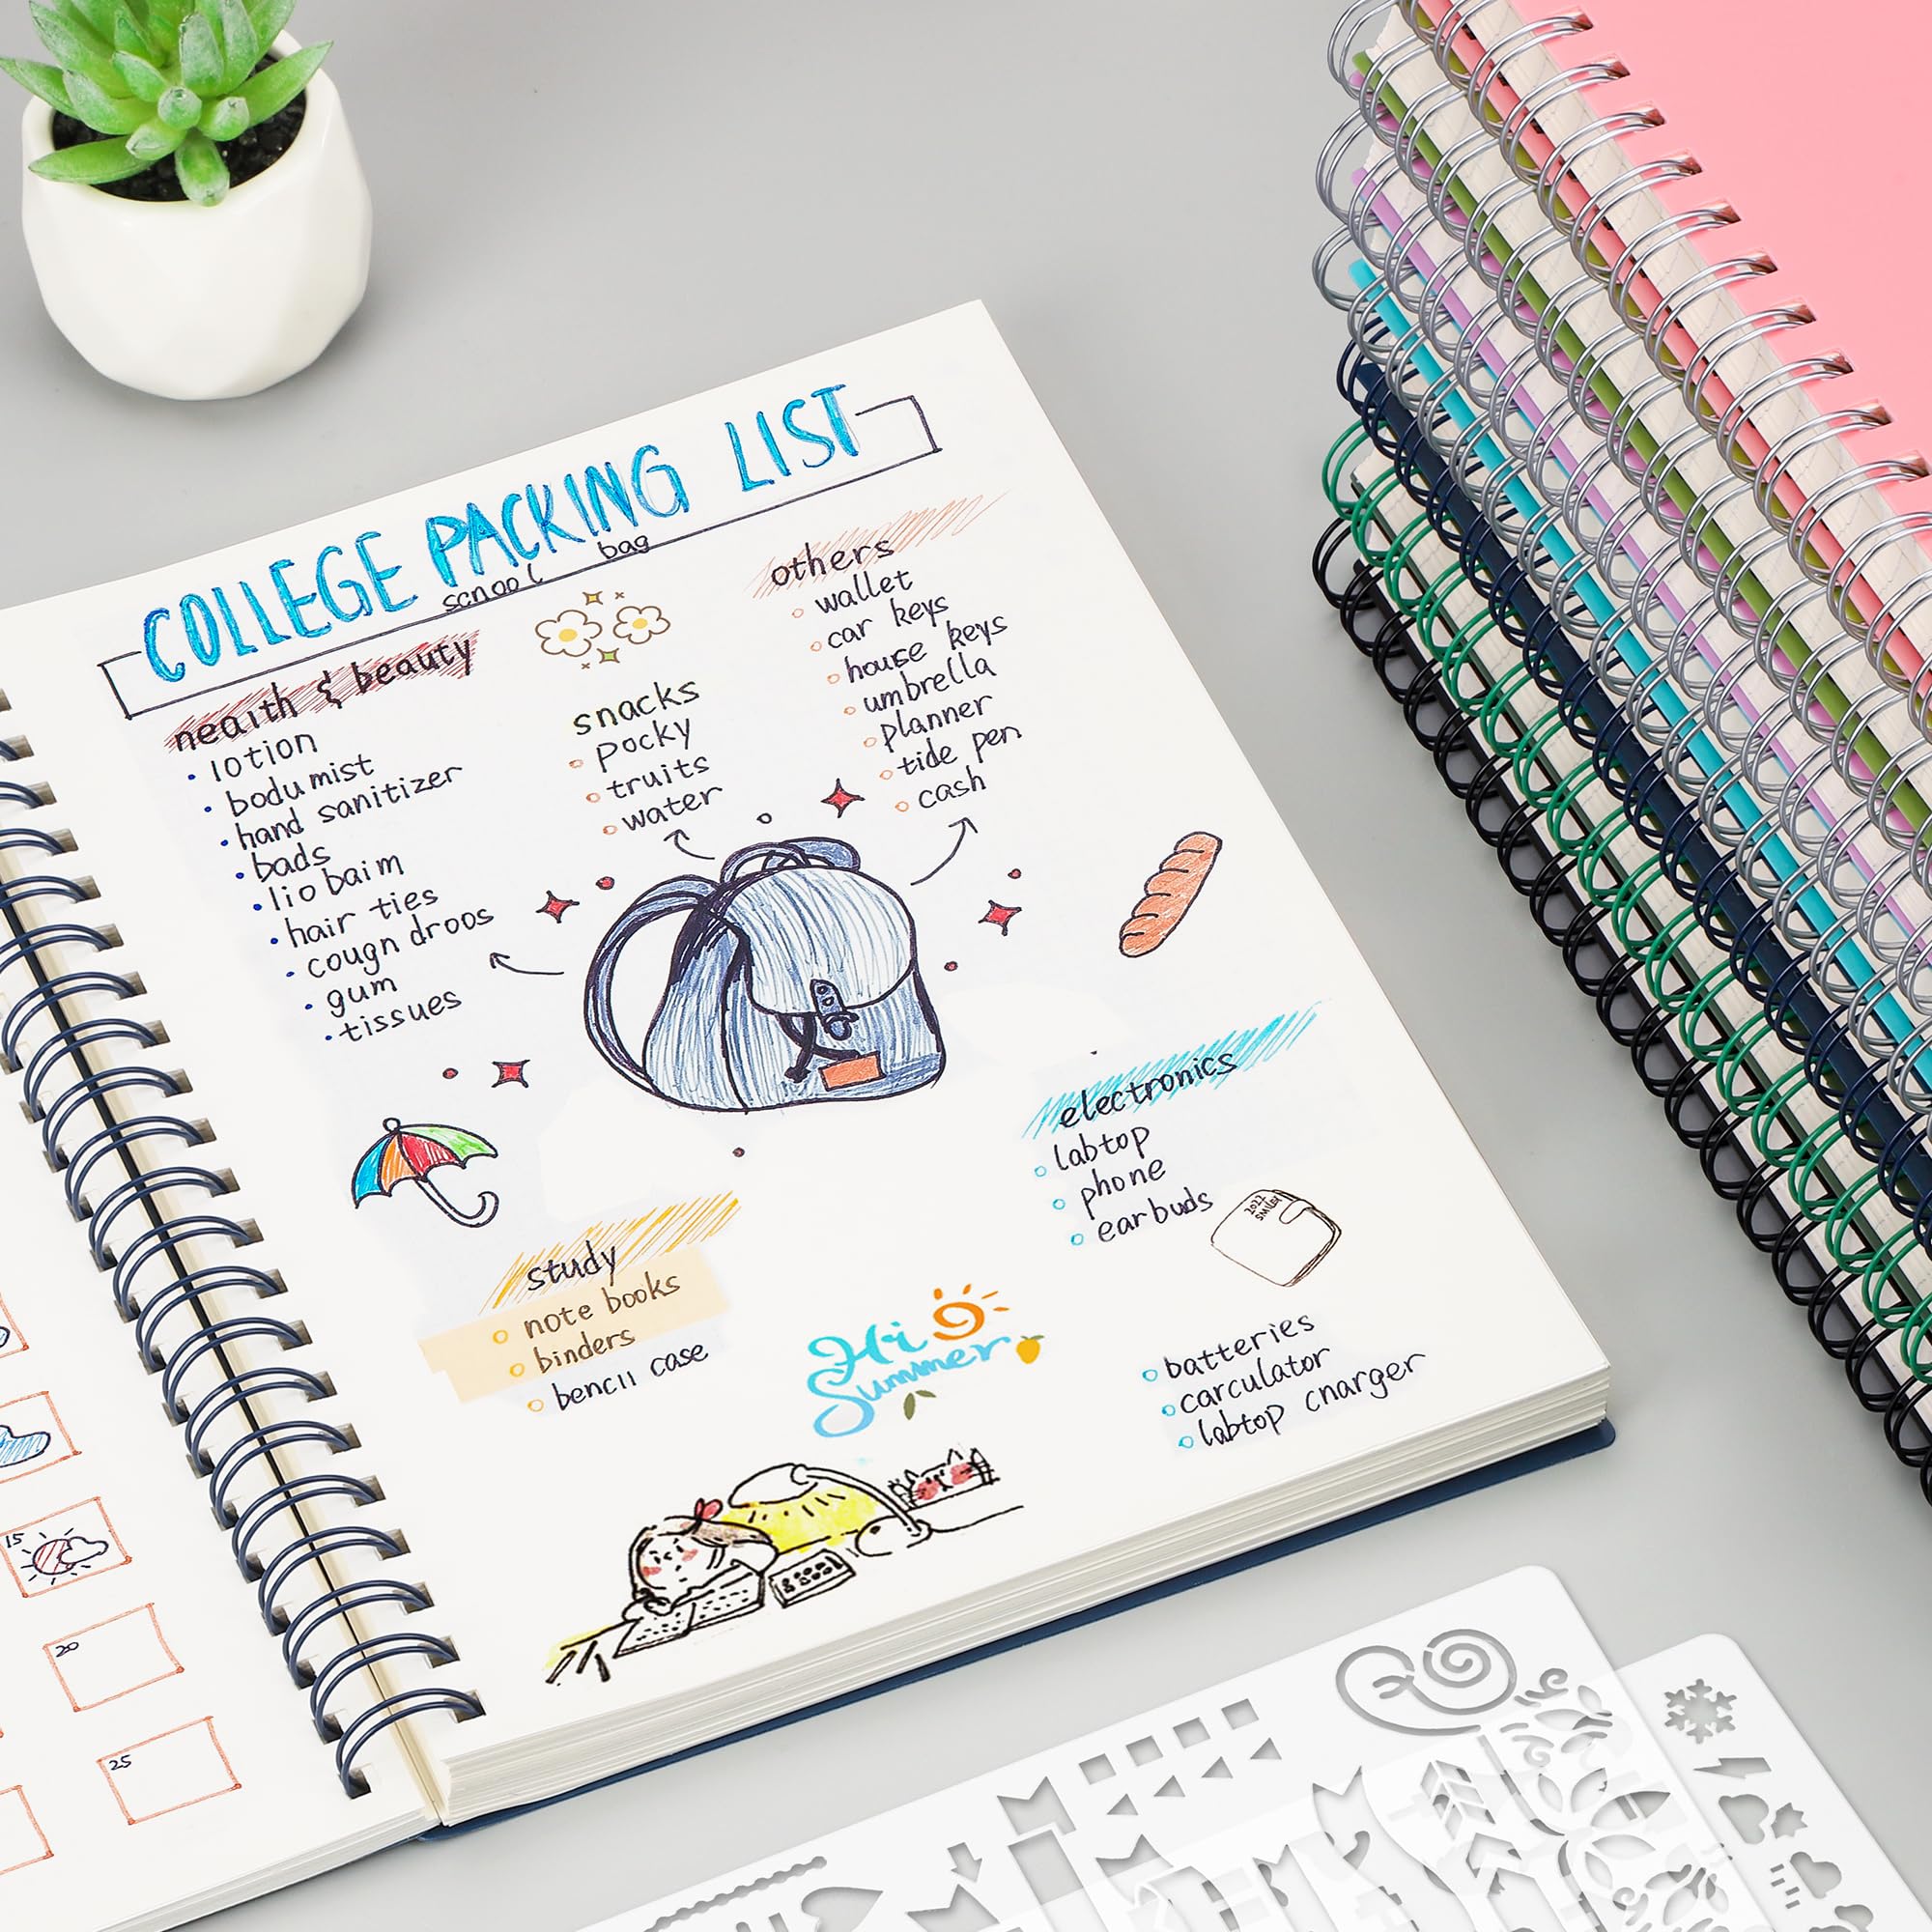 COLLEGE PACKING LIST
scnool bag
neaith & beauty
lotion
bodu mist
hand sanitizer
bads
lio baim
hair ties
cougn droos
gum
tissues
snacks
pocky
truits
water
others
wallet
car keys
house keys
umbrella
planner
tide pen
cash
electronics
labtop
phone
earbuds
2022
SMILEY
batteries
carculator
labtop cnarger
study
note books
binders
bencil case
Hi
Summer
15
20
25